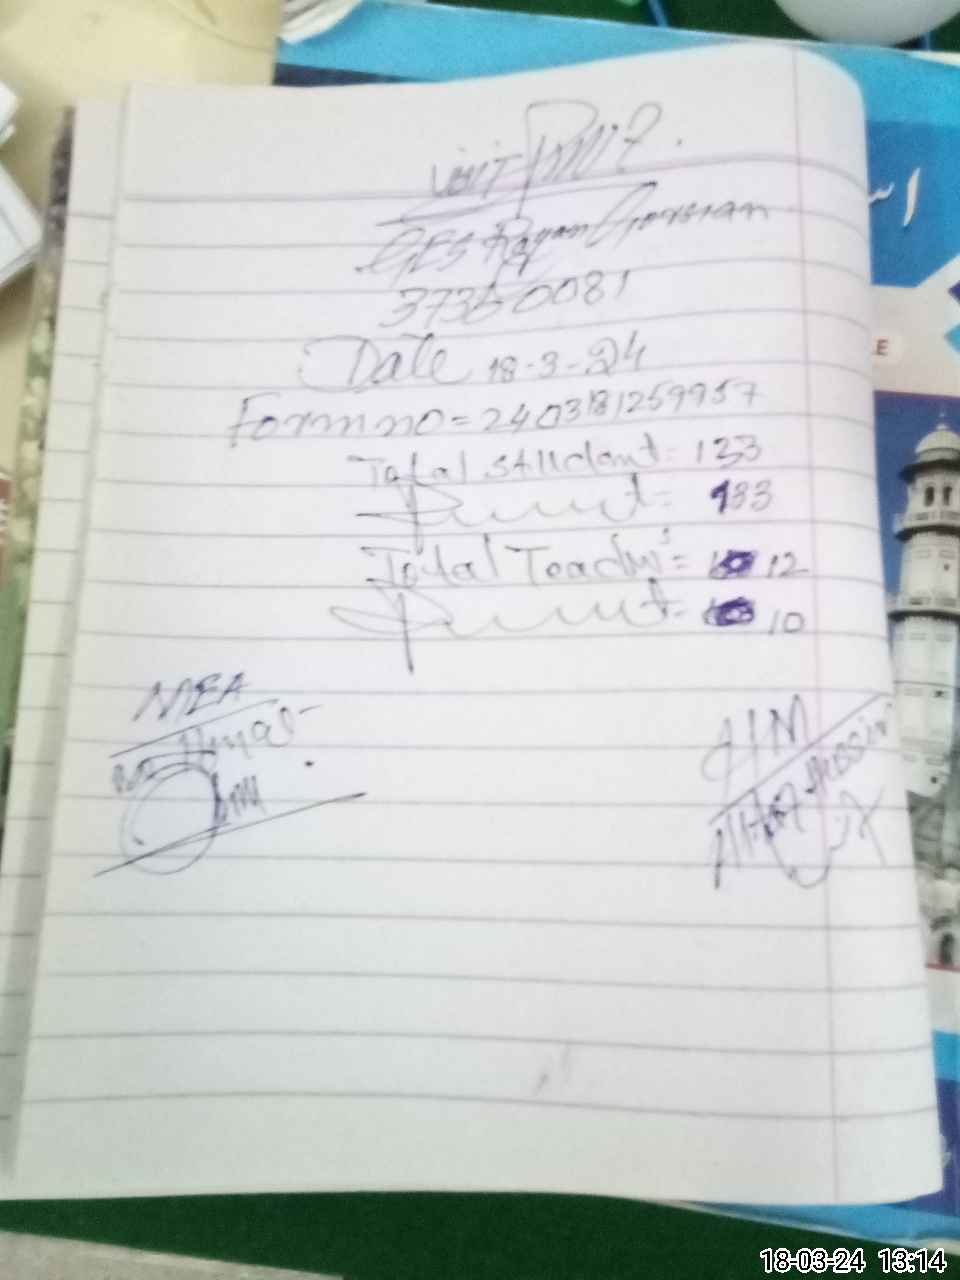 Visit PMIF
GES Rayan Gorsian
37360081
Date 18-3-24
Form no = 2403181259957
Total Student = 133
Present = 133
Total Teacher's = 12
Present = 10
MEA
HM
LE
18-03-24 13:14